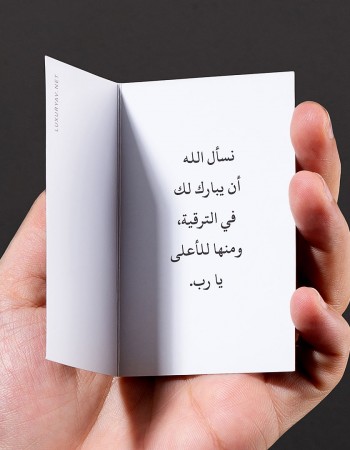 نسأل الله
أن يبارك لك
في الترقية،
ومنها للأعلى
يا رب.